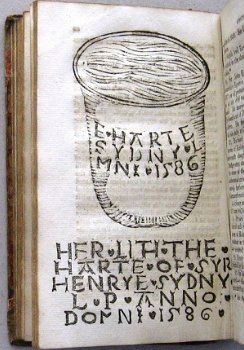 E·HARTE
SYDNY·L
MNI·1586
HER·LITH·THE
HARTE·OF·SYR
HENRYE·SYDNY
L·P·ANNO
DOMNI·1586·